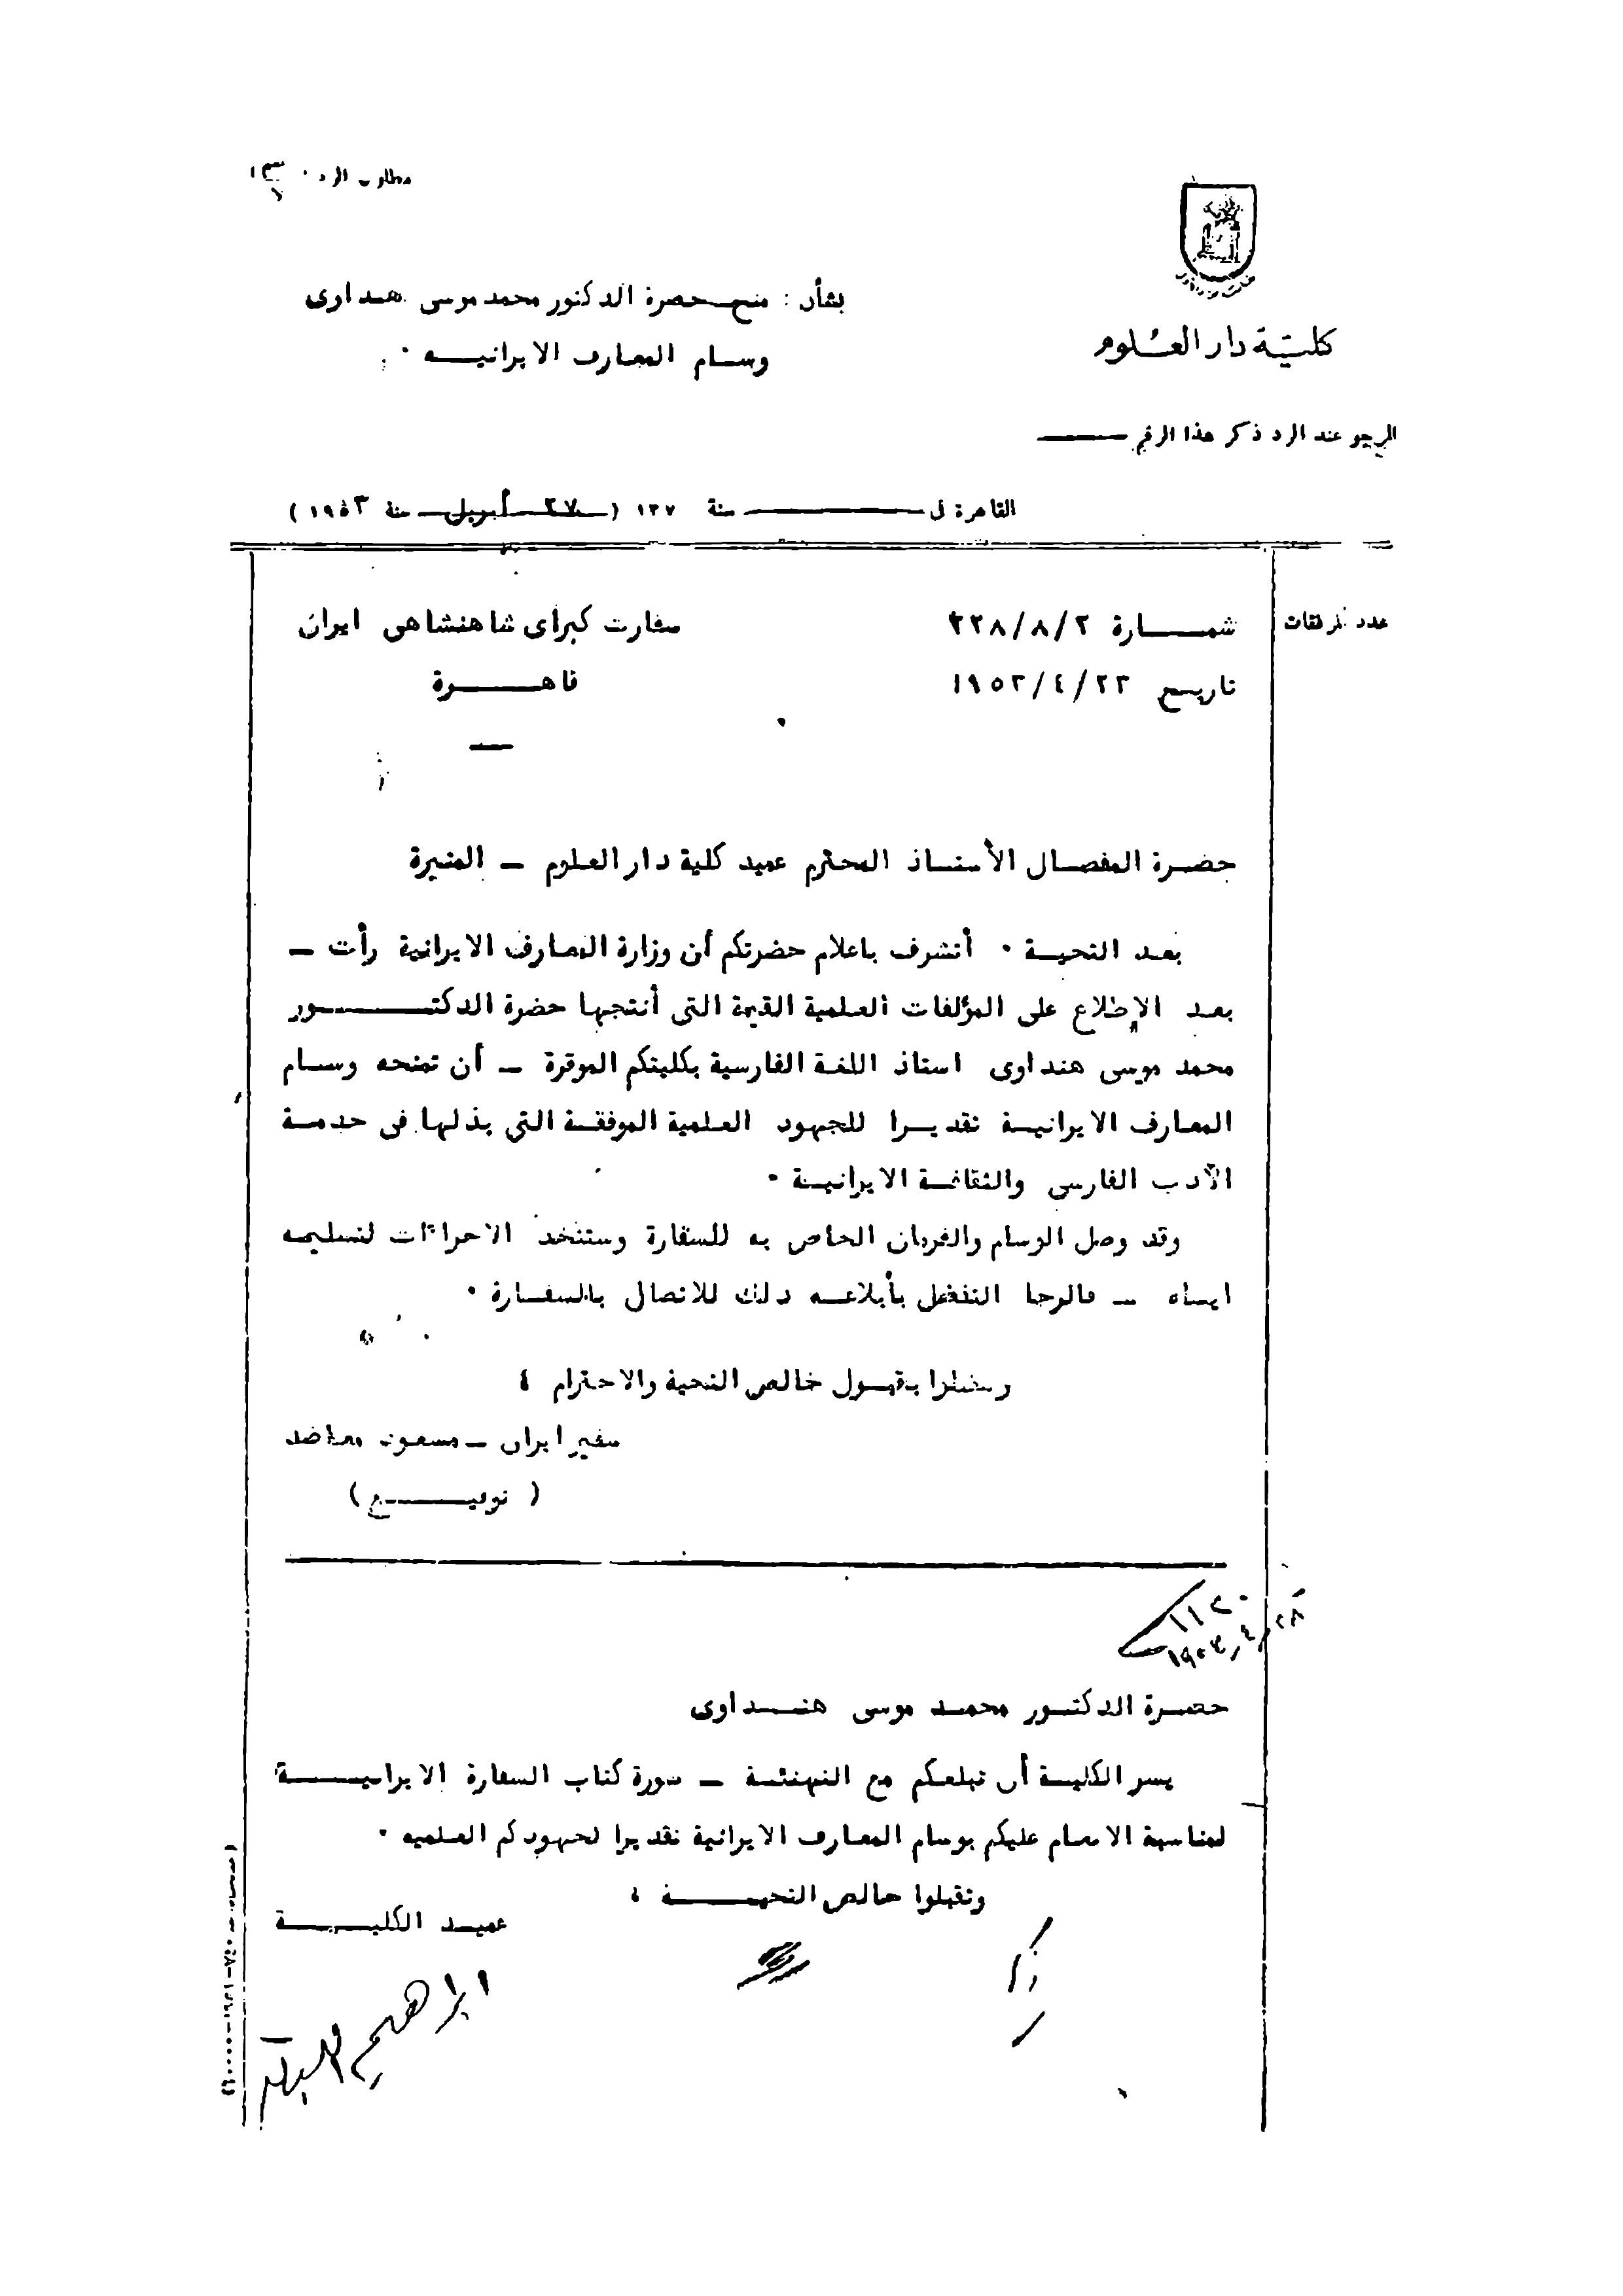 مطلوب الرد
بشأن : منح حضرة الدكتور محمد موسى هنداوى
وسام المعارف الايرانيه ٠
كلية دار العلوم
المرجو عند الرد ذكر هذا الرقم
القاهرة فى سنة ١٣٧ ( ٢٧ أبريل سنة ١٩٥٣ )
عدد المرفقات
شمارة ٢٢٨/٨/٢ سفارت كبراى شاهنشاهى ايران
تاريخ ١٩٥٣/٤/٢٣ قاهرة
حضرة المفضال الأستاذ المحترم عميد كلية دار العلوم – المنيرة
بعد التحية ٠ أتشرف باعلام حضرتكم أن وزارة المعارف الايرانية رأت –
بعد الإطلاع على المؤلفات العلمية القيمة التى أنتجها حضرة الدكتور
محمد موسى هنداوى استاذ اللغة الفارسية بكليتكم الموقرة – أن تمنحه وسام
المعارف الايرانية تقديرا للجهود العلمية الموفقة التي بذلها فى خدمة
الأدب الفارسى والثقافة الايرانية ٠
وقد وصل الوسام والفرمان الخاص به للسفارة وستتخذ الاجراءات لتسليمه
اياه – فالرجا التفضل بأبلاغه ذلك للاتصال بالسفارة ٠
وتفضلوا بقبول خالص التحية والاحترام ،
سفير ايران – مسعود معاضد
( توقيع )
١١٢٠
٢٨ / ٤ / ١٩٥٣
حضرة الدكتور محمد موسى هنداوى
يسر الكلية أن تبلغكم مع التهنئة – صورة كتاب السفارة الايرانية
لمناسبة الانعام عليكم بوسام المعارف الايرانية تقديرا لجهودكم العلميه ٠
وتقبلوا خالص التحية ،
عميد الكلية
ابراهيم